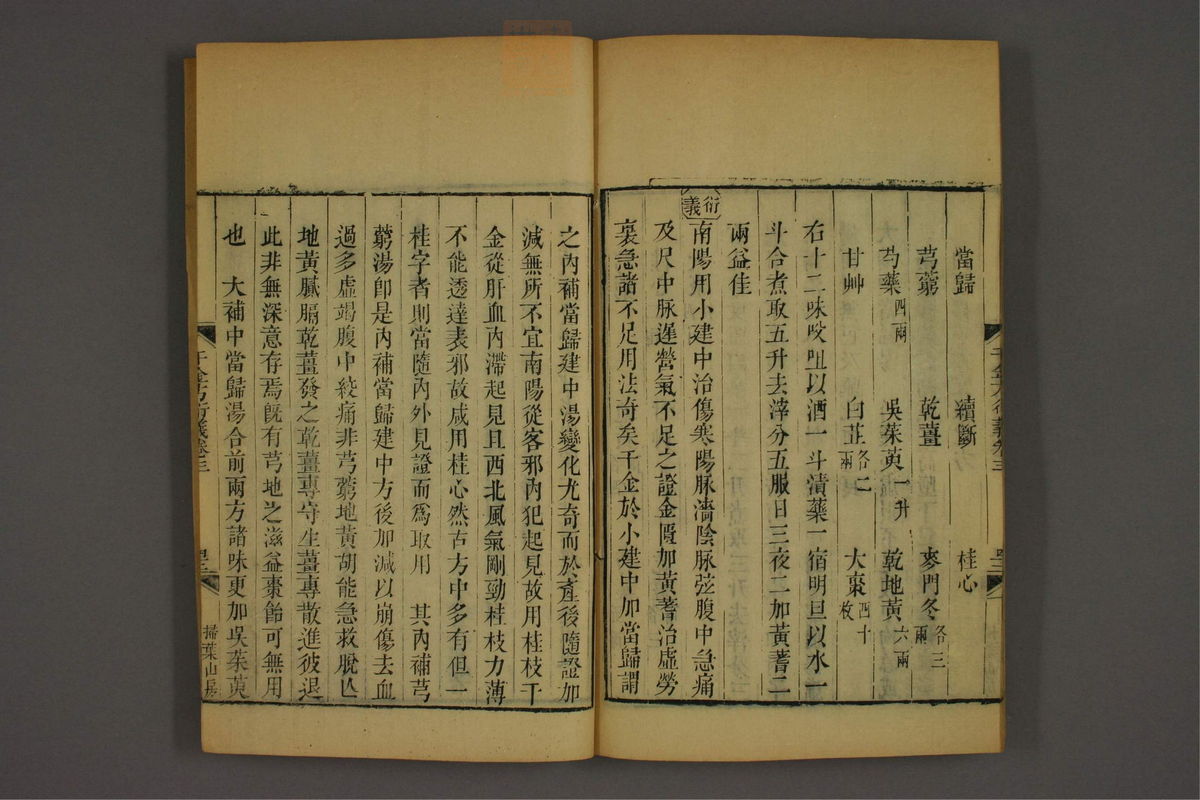 當歸 續斷 桂心
芎藭 乾薑 麥門冬各三兩
芍藥四兩 吳茱萸一升 乾地黃六兩
甘艸 白芷各二兩 大棗四十枚
右十二味㕮咀以酒一斗漬藥一宿明旦以水一
斗合煮取五升去滓分五服日三夜二加黃蓍二
兩益佳
衍義
南陽用小建中治傷寒陽脉濇陰脉弦腹中急痛
及尺中脉遲營氣不足之證金匱加黃蓍治虛勞
裏急諸不足用法奇矣千金於小建中加當歸謂
之內補當歸建中湯變化尤奇而於產後隨證加
減無所不宜南陽從客邪內犯起見故用桂枝千
金從肝血內滯起見且西北風氣剛勁桂枝力薄
不能透達表邪故咸用桂心然古方中多有但一
桂字者則當隨內外見證而爲取用 其內補芎
藭湯卽是內補當歸建中方後加減以崩傷去血
過多虛竭腹中㽲痛非芎藭地黃胡能急救脫亾
地黃膩膈乾薑發之乾薑專守生薑專散進彼退
此非無深意存焉旣有芎地之滋益棗飴可無用
也 大補中當歸湯合前兩方諸味更加吳茱萸
千金方衍義卷三
掃葉山房